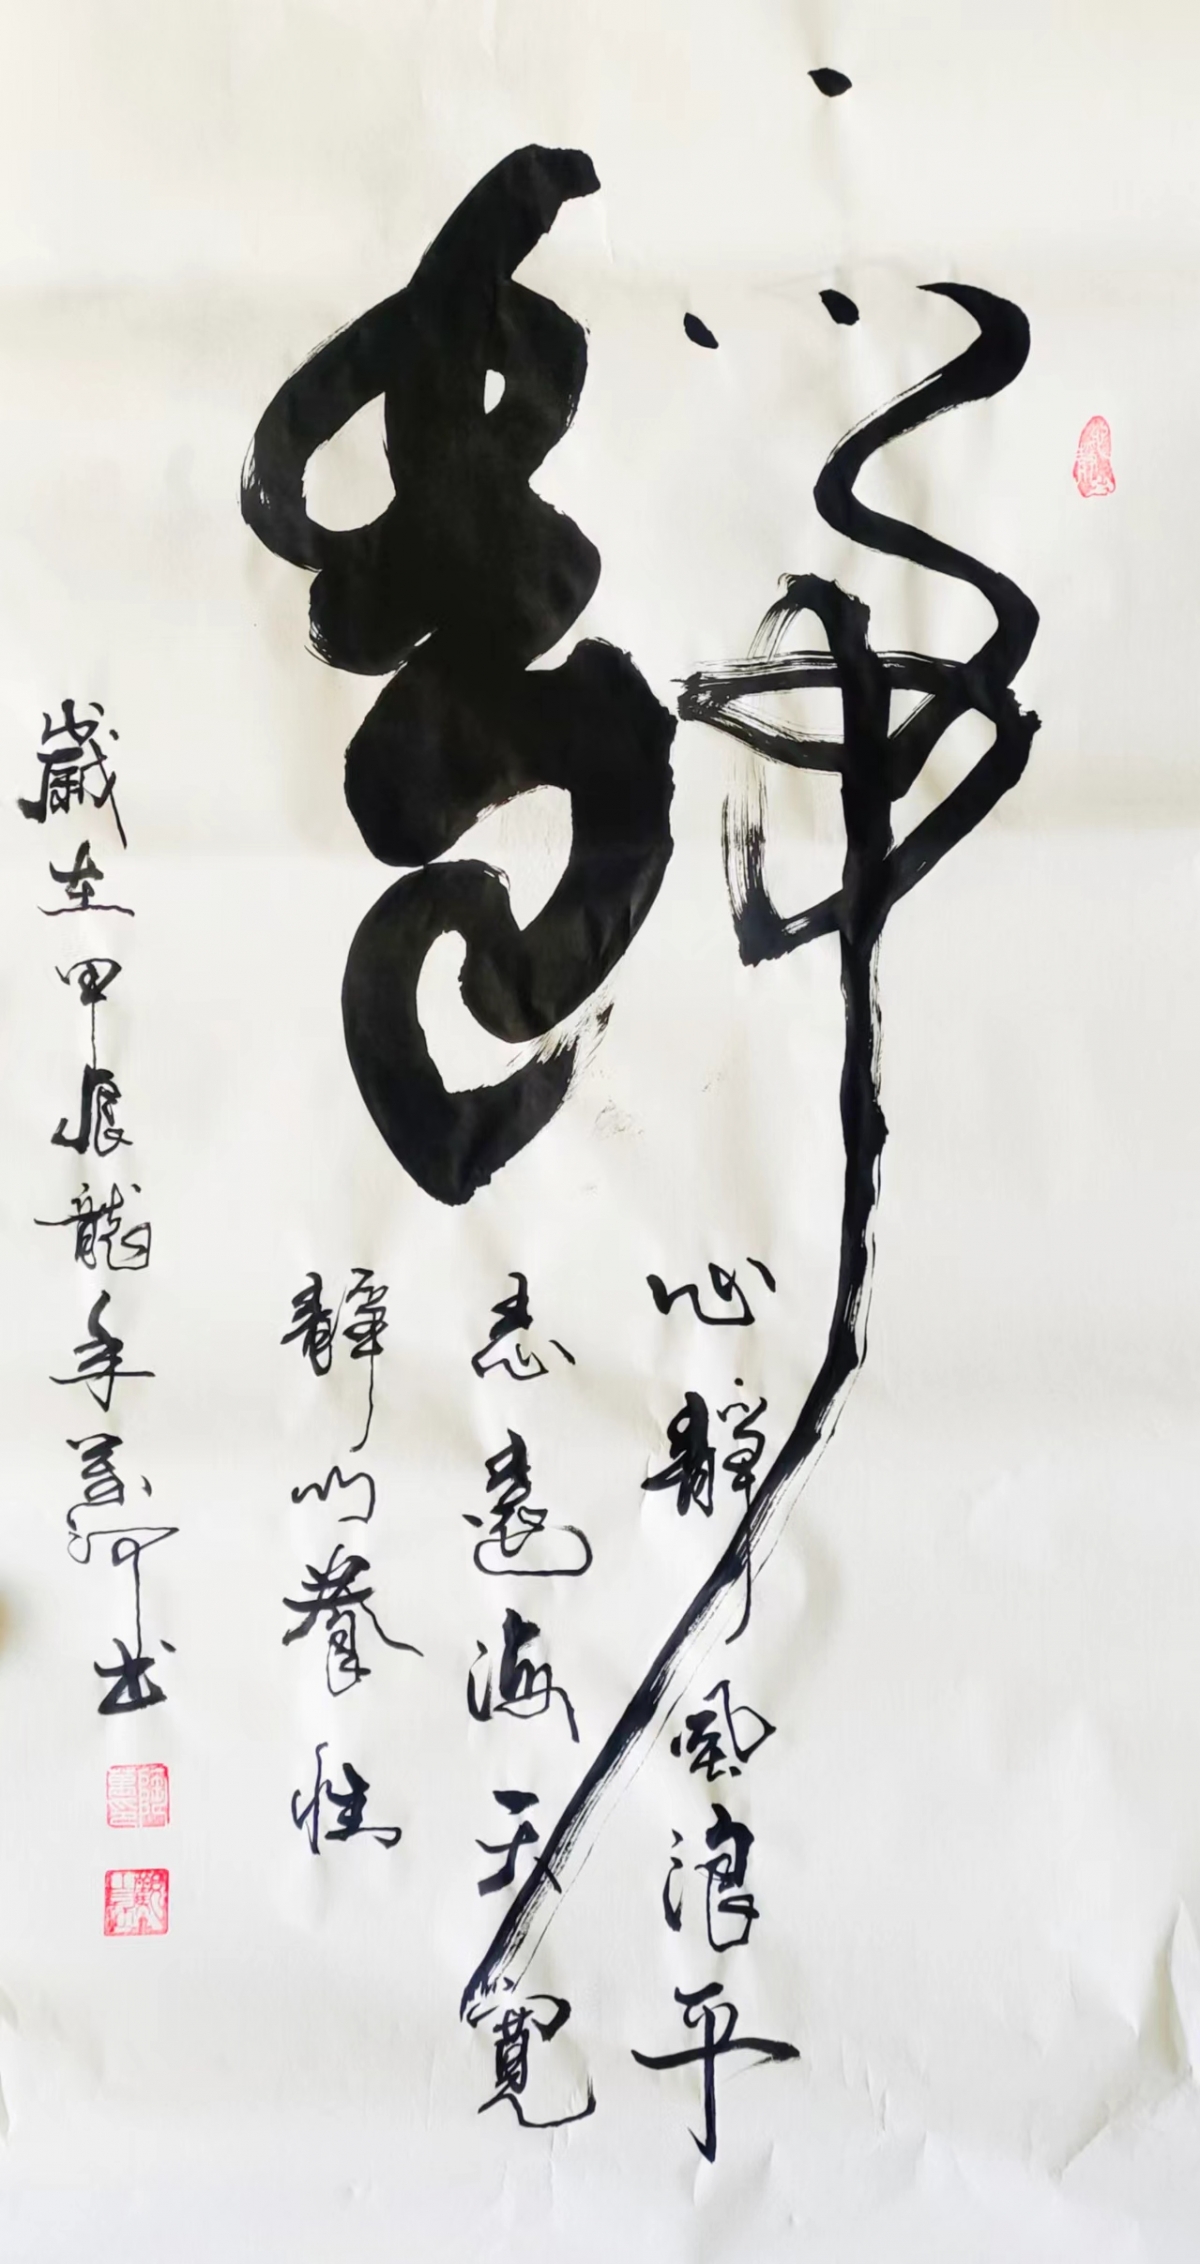 靜
心靜風浪平
志遠海天寬
靜以養性
歲在甲辰龍年万河书